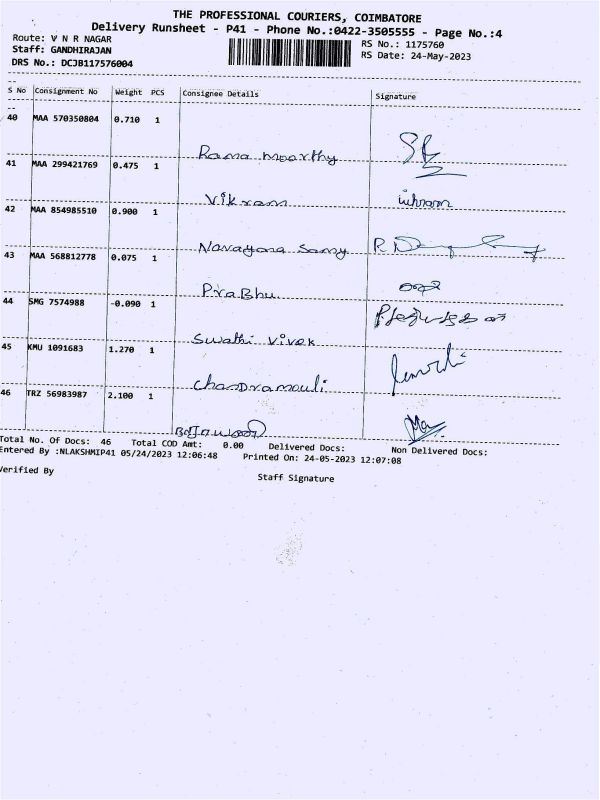 THE PROFESSIONAL COURIERS, COIMBATORE
Delivery Runsheet - P41 - Phone No.:0422-3505555 - Page No.:4
Route: V N R NAGAR
RS No.: 1175760
Staff: GANDHIRAJAN
RS Date: 24-May-2023
DRS No.: DCJB117576004
S No Consignment No Weight PCS Consignee Details Signature
40 MAA 570350804 0.710 1
Rama moorthy
41 MAA 299421769 0.475 1
Vikram
42 MAA 854985510 0.900 1
Narayana Samy
43 MAA 568812778 0.075 1
PraBhu
44 SMG 7574988 -0.090 1
Swathi Vivek
45 KMU 1091683 1.270 1
ChanDramouli
46 TRZ 56983987 2.100 1
Total No. Of Docs: 46 Total COD Amt: 0.00 Delivered Docs: Non Delivered Docs:
Entered By :NLAKSHMIP41 05/24/2023 12:06:48 Printed On: 24-05-2023 12:07:08
Verified By Staff Signature